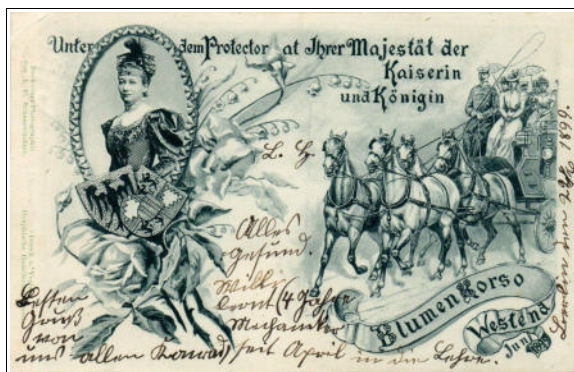 Unter dem Protectorat Ihrer Majestät der
Kaiserin
und Königin
L. H.
Alles
gesund.
Willi
lernt (4 Jahre
Mechaniker
seit April in die Lehre.
Besten
Gruß
von
uns allen Konrad
Blumen Korso
Westend
Juni
Berlin den 1899.